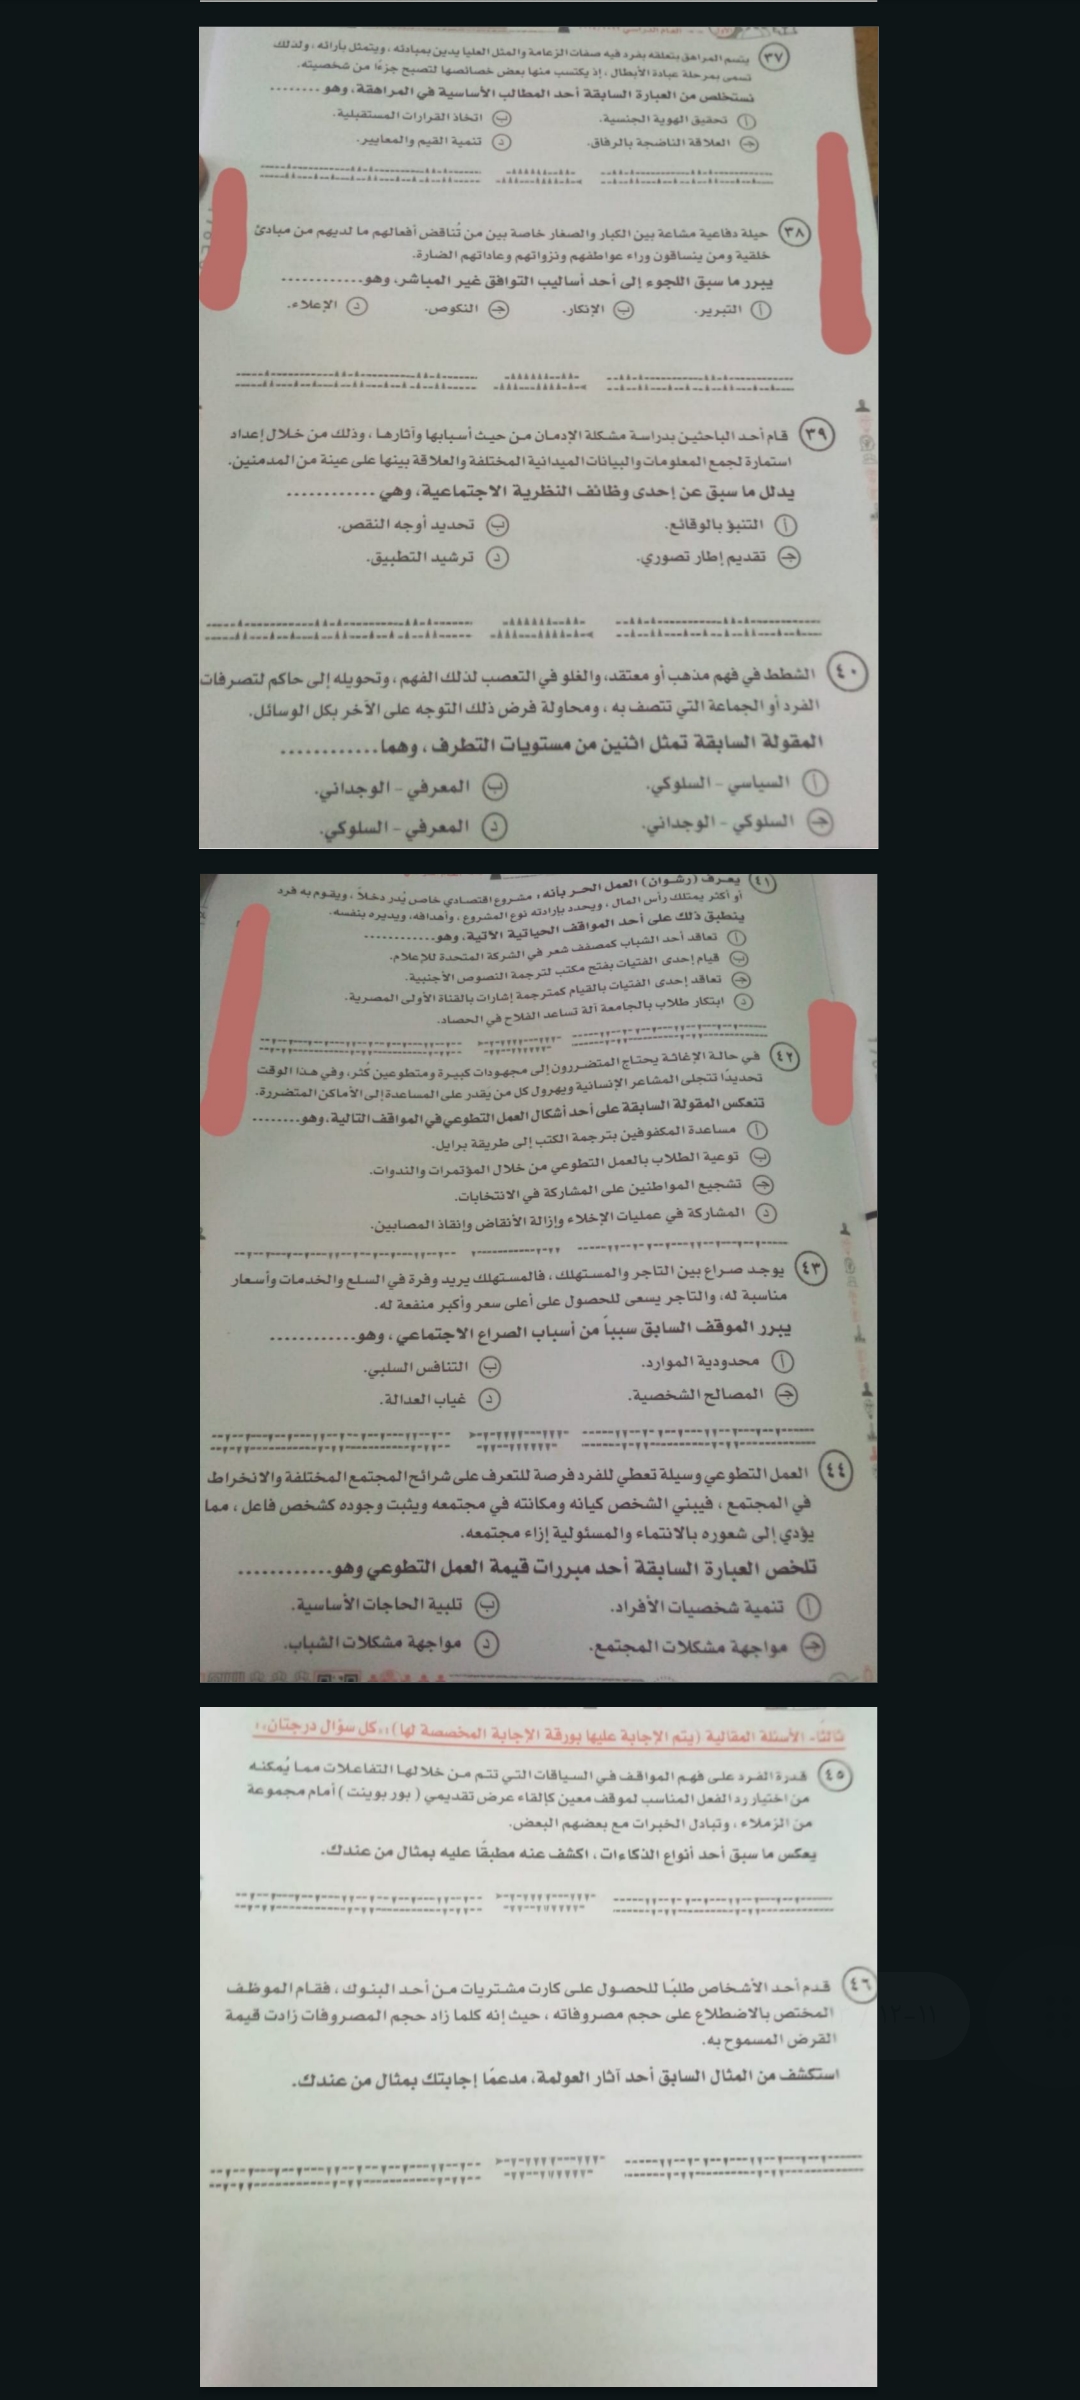 ٣٧ يتسم المراهق بتعلقه بفرد فيه صفات الزعامة والمثل العليا يدين بمبادئه ، ويتمثل بآرائه ، ولذلك
تسمى بمرحلة عبادة الأبطال ، إذ يكتسب منها بعض خصائصها لتصبح جزءًا من شخصيته.
نستخلص من العبارة السابقة أحد المطالب الأساسية في المراهقة، وهو ........
أ تحقيق الهوية الجنسية. ب اتخاذ القرارات المستقبلية.
ج العلاقة الناضجة بالرفاق. د تنمية القيم والمعايير.
٣٨ حيلة دفاعية مشاعة بين الكبار والصغار خاصة بين من تُناقض أفعالهم ما لديهم من مبادئ
خلقية ومن ينساقون وراء عواطفهم ونزواتهم وعاداتهم الضارة.
يبرر ما سبق اللجوء إلى أحد أساليب التوافق غير المباشر، وهو............
أ التبرير. ب الإنكار. ج النكوص. د الإعلاء.
٣٩ قام أحد الباحثين بدراسة مشكلة الإدمان من حيث أسبابها وآثارها ، وذلك من خلال إعداد
استمارة لجمع المعلومات والبيانات الميدانية المختلفة والعلاقة بينها على عينة من المدمنين.
يدلل ما سبق عن إحدى وظائف النظرية الاجتماعية، وهي ............
أ التنبؤ بالوقائع. ب تحديد أوجه النقص.
ج تقديم إطار تصوري. د ترشيد التطبيق.
٤٠ الشطط في فهم مذهب أو معتقد، والغلو في التعصب لذلك الفهم ، وتحويله إلى حاكم لتصرفات
الفرد أو الجماعة التي تتصف به ، ومحاولة فرض ذلك التوجه على الآخر بكل الوسائل.
المقولة السابقة تمثل اثنين من مستويات التطرف ، وهما............
أ السياسي - السلوكي. ب المعرفي - الوجداني.
ج السلوكي - الوجداني. د المعرفي - السلوكي.
٤١ يعرف (رشوان) العمل الحر بأنه ، مشروع اقتصادي خاص يُدر دخلاً ، ويقوم به فرد
أو أكثر يمتلك رأس المال ، ويحدد بإرادته نوع المشروع ، وأهدافه، ويديره بنفسه.
ينطبق ذلك على أحد المواقف الحياتية الآتية، وهو............
أ تعاقد أحد الشباب كمصفف شعر في الشركة المتحدة للإعلام.
ب قيام إحدى الفتيات بفتح مكتب لترجمة النصوص الأجنبية.
ج تعاقد إحدى الفتيات بالقيام كمترجمة إشارات بالقناة الأولى المصرية.
د ابتكار طلاب بالجامعة آلة تساعد الفلاح في الحصاد.
٤٢ في حالة الإغاثة يحتاج المتضررون إلى مجهودات كبيرة ومتطوعين كُثر، وفي هذا الوقت
تحديدًا تتجلى المشاعر الإنسانية ويهرول كل من يَقدر على المساعدة إلى الأماكن المتضررة.
تنعكس المقولة السابقة على أحد أشكال العمل التطوعي في المواقف التالية، وهو........
أ مساعدة المكفوفين بترجمة الكتب إلى طريقة برايل.
ب توعية الطلاب بالعمل التطوعي من خلال المؤتمرات والندوات.
ج تشجيع المواطنين على المشاركة في الانتخابات.
د المشاركة في عمليات الإخلاء وإزالة الأنقاض وإنقاذ المصابين.
٤٣ يوجد صراع بين التاجر والمستهلك ، فالمستهلك يريد وفرة في السلع والخدمات وأسعار
مناسبة له، والتاجر يسعى للحصول على أعلى سعر وأكبر منفعة له.
يبرر الموقف السابق سبباً من أسباب الصراع الاجتماعي ، وهو............
أ محدودية الموارد. ب التنافس السلبي.
ج المصالح الشخصية. د غياب العدالة.
٤٤ العمل التطوعي وسيلة تعطي للفرد فرصة للتعرف على شرائح المجتمع المختلفة والانخراط
في المجتمع ، فيبني الشخص كيانه ومكانته في مجتمعه ويثبت وجوده كشخص فاعل ، مما
يؤدي إلى شعوره بالانتماء والمسئولية إزاء مجتمعه.
تلخص العبارة السابقة أحد مبررات قيمة العمل التطوعي وهو............
أ تنمية شخصيات الأفراد. ب تلبية الحاجات الأساسية.
ج مواجهة مشكلات المجتمع. د مواجهة مشكلات الشباب.
ثالثًا- الأسئلة المقالية (يتم الإجابة عليها بورقة الإجابة المخصصة لها)؛؛كل سؤال درجتان؛؛
٤٥ قدرة الفرد على فهم المواقف في السياقات التي تتم من خلالها التفاعلات مما يُمكنه
من اختيار رد الفعل المناسب لموقف معين كإلقاء عرض تقديمي ( بور بوينت ) أمام مجموعة
من الزملاء ، وتبادل الخبرات مع بعضهم البعض.
يعكس ما سبق أحد أنواع الذكاءات ، اكشف عنه مطبقًا عليه بمثال من عندك.
٤٦ قدم أحد الأشخاص طلبًا للحصول على كارت مشتريات من أحد البنوك ، فقام الموظف
المختص بالاضطلاع على حجم مصروفاته ، حيث إنه كلما زاد حجم المصروفات زادت قيمة
القرض المسموح به.
استكشف من المثال السابق أحد آثار العولمة، مدعمًا إجابتك بمثال من عندك.